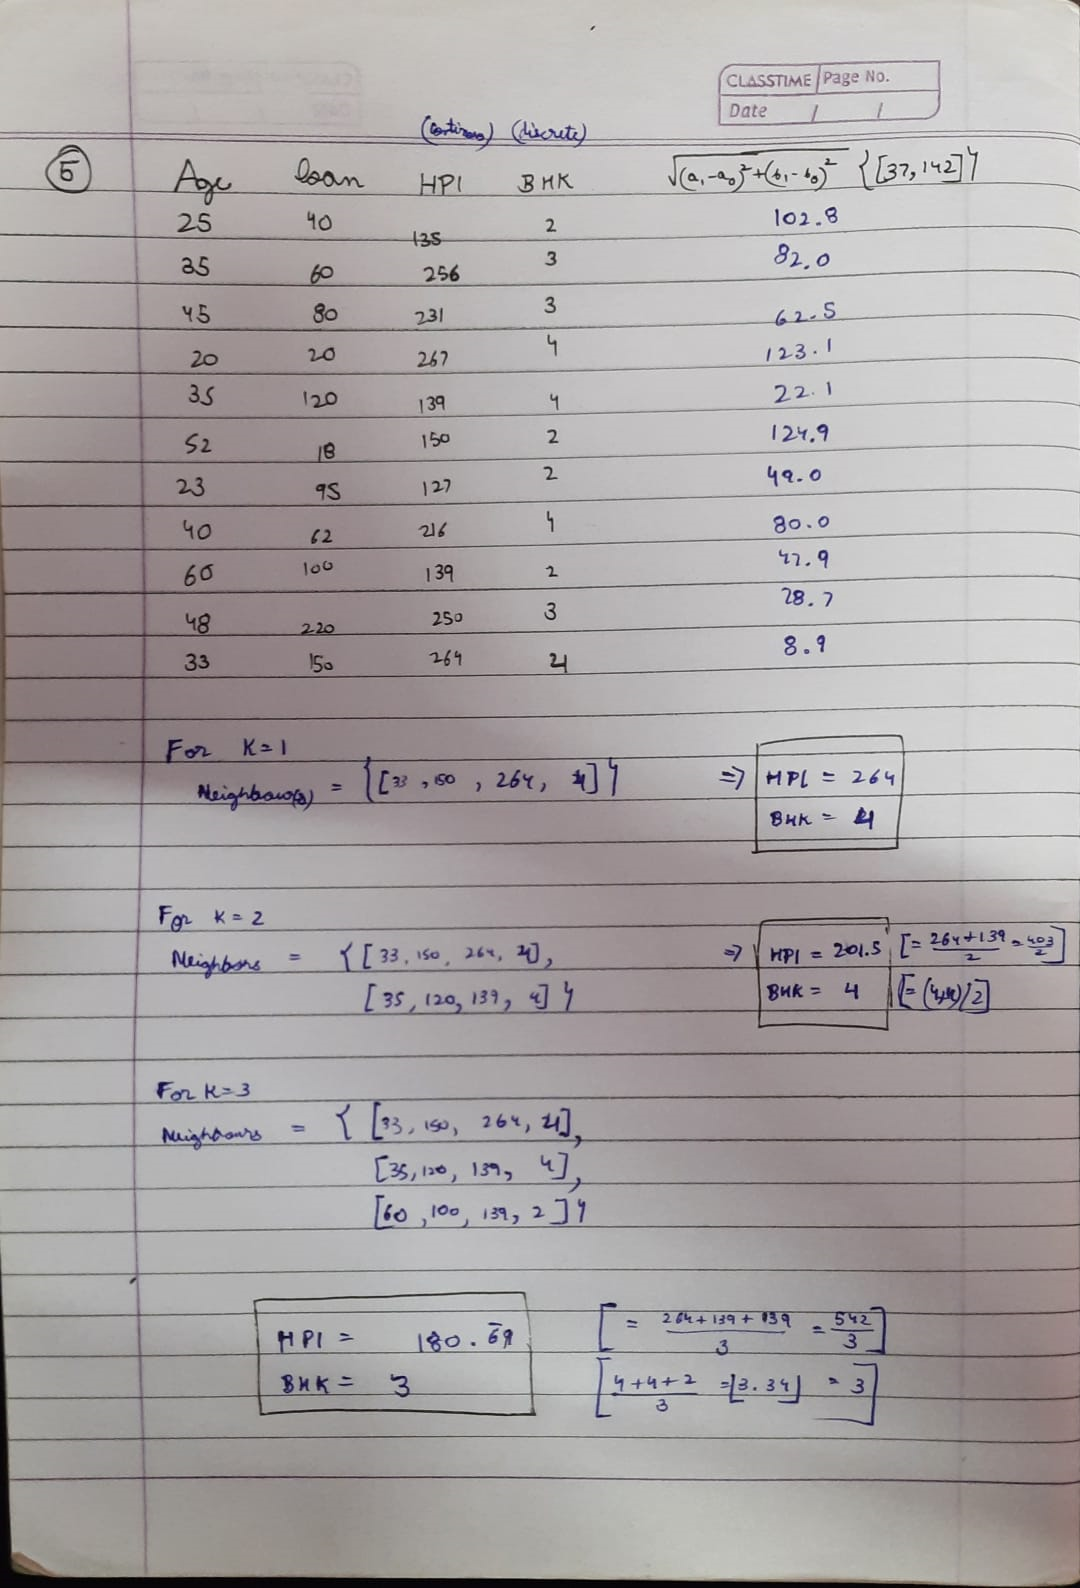 CLASSTIME Page No.
Date / /
(continuous) (discrete)
5 Age loan HPI BHK √(a₁-a₀)²+(b₁-b₀)² {[37,142]}
25 40 135 2 102.8
35 60 256 3 82.0
45 80 231 3 62.5
20 20 267 4 123.1
35 120 139 4 22.1
52 18 150 2 124.9
23 95 127 2 49.0
40 62 216 4 80.0
60 100 139 2 47.9
48 220 250 3 28.7
33 150 264 4 8.9
For K=1
Neighbour(s) = {[33, 150, 264, 4]} => HPI = 264
BHK = 4
For K=2
Neighbors = {[33, 150, 264, 4], => HPI = 201.5 [= 264+139/2 = 403/2]
[35, 120, 139, 4]} BHK = 4 [= (4+4)/2]
For K=3
Neighbours = {[33, 150, 264, 4],
[35, 120, 139, 4],
[60, 100, 139, 2]}
HPI = 180.69 [= 264+139+139/3 = 542/3]
BHK = 3 [4+4+2/3 = ⌊3.34⌋ = 3]